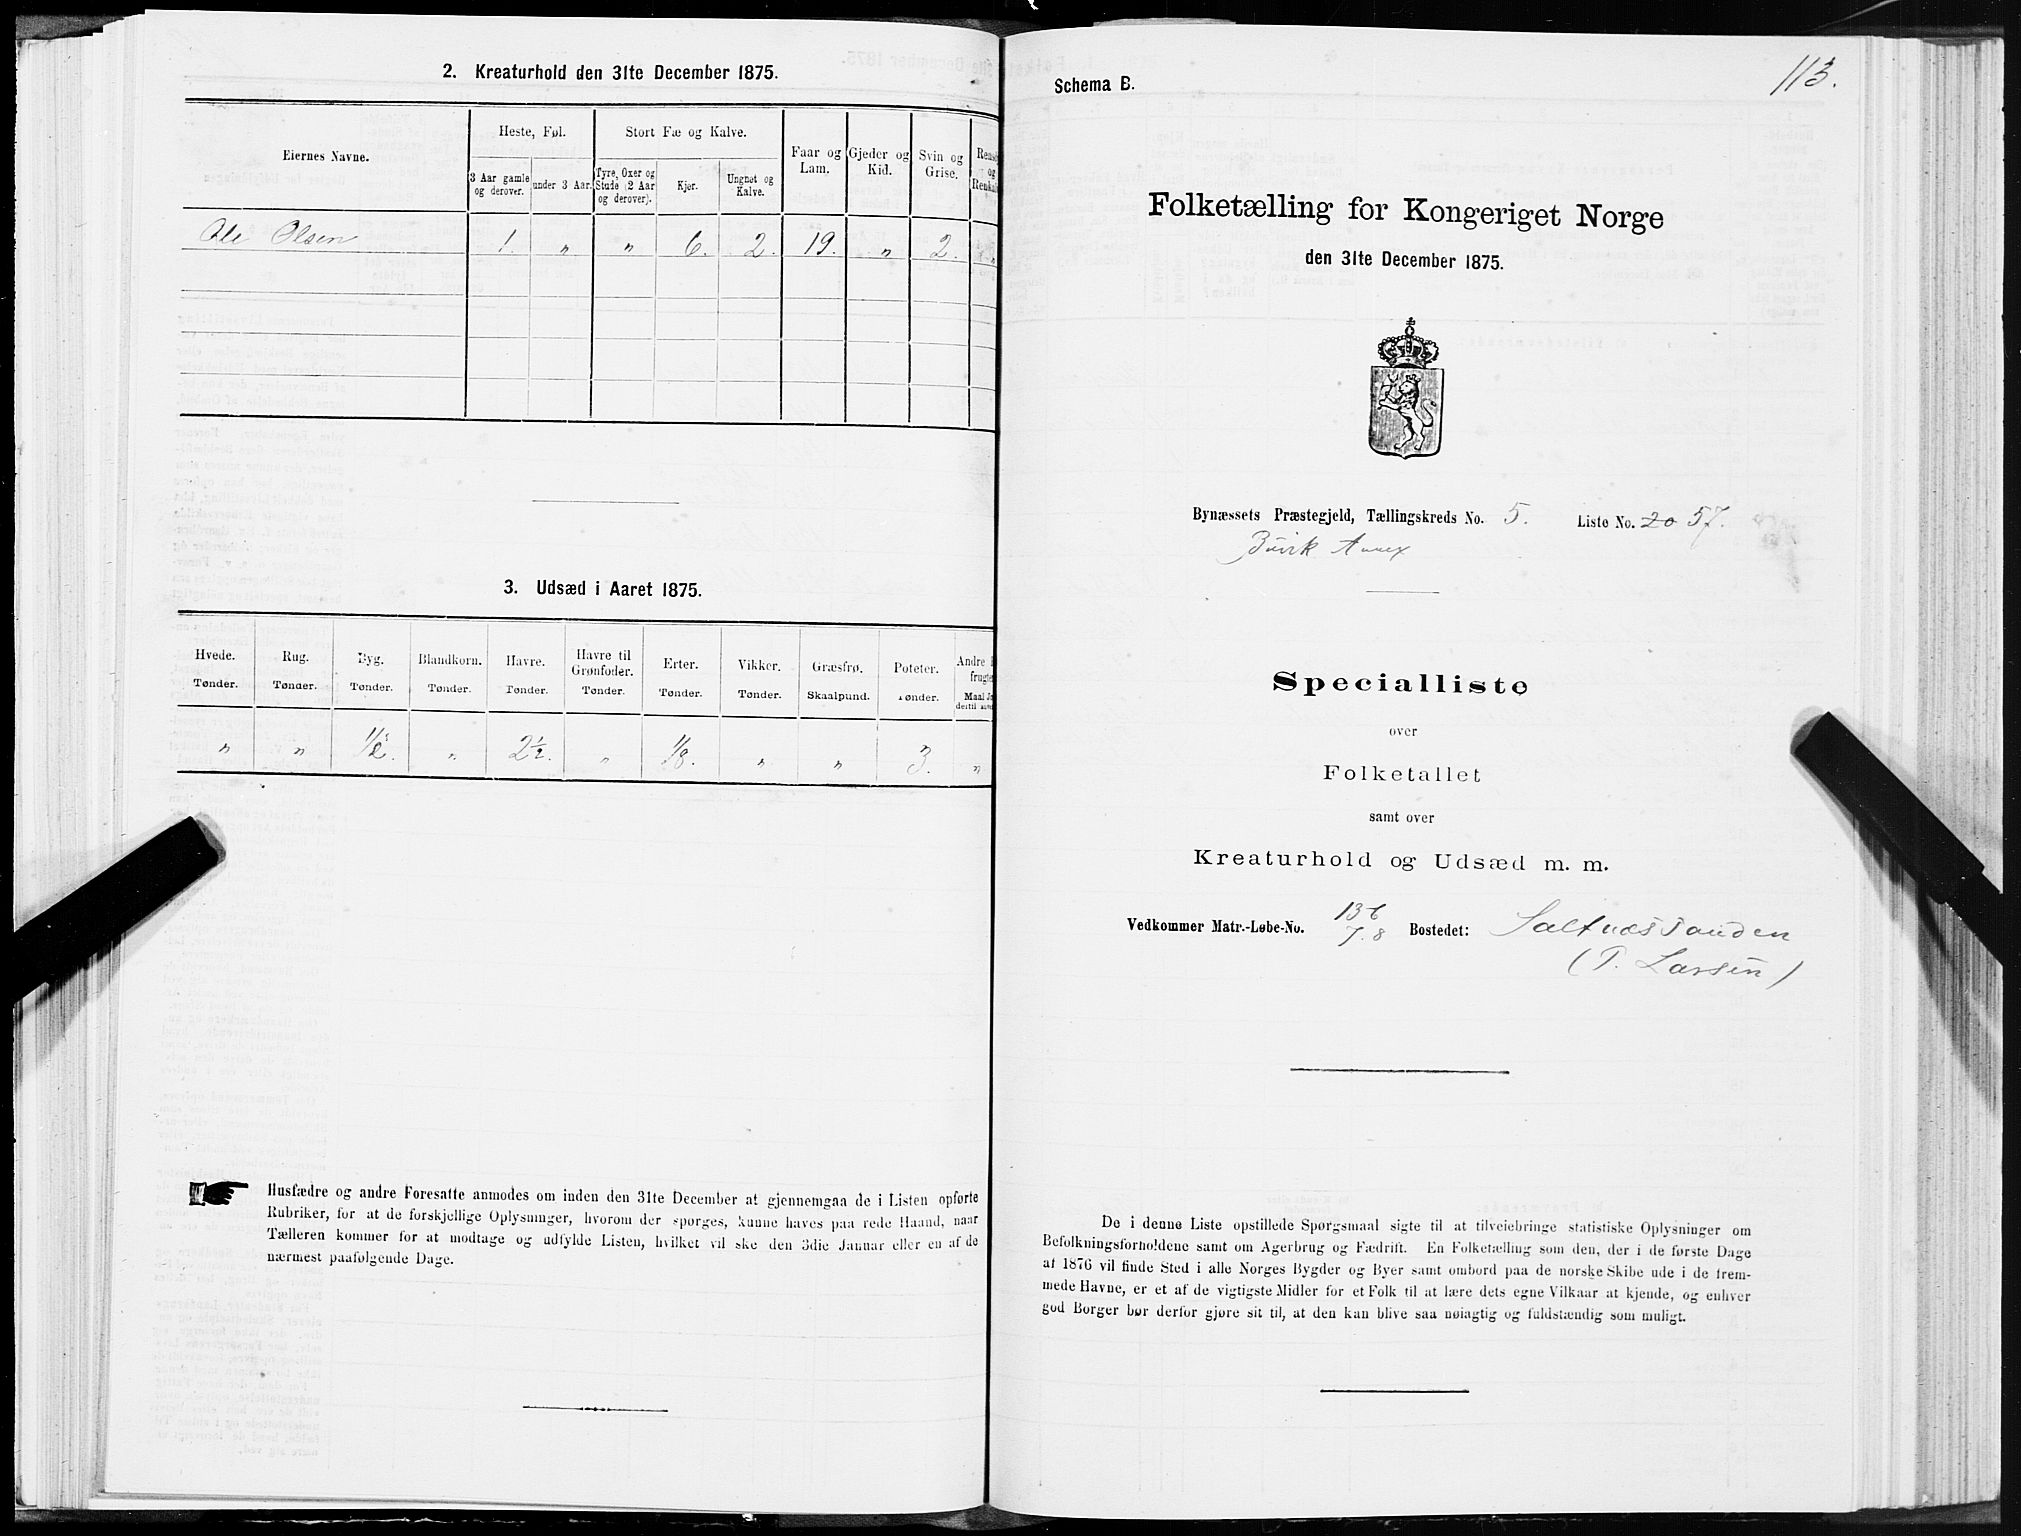 2. Kreaturhold den 31te December 1875.
Eiernes Navne.
Heste, Føl.
Stort Fæ og Kalve.
Faar og Lam.
Gjeder og Kid.
Svin og Grise.
3 Aar gamle og derover.
under 3 Aar.
Tyre, Oxer og Stude (2 Aar og derover).
Kjør.
Ungnøt og Kalve.
Ole Olsen 1. " " 6. 2. 19. " 2. "
3. Udsæd i Aaret 1875.
Hvede. Rug. Byg. Blandkorn. Havre. Havre til Grønfoder. Erter. Vikker. Græsfrø. Poteter.
Tønder. Tønder. Tønder. Tønder. Tønder. Tønder. Tønder. Tønder. Skaalpund. Tønder.
" " 1/2. " 2 1/2. " 1/8. " " 3. "
Husfædre og andre Foresatte anmodes om inden den 31te December at gjennemgaa de i Listen opførte
Rubriker, for at de forskjellige Oplysninger, hvorom der spørges, kunne haves paa rede Haand, naar
Tælleren kommer for at modtage og udfylde Listen, hvilket vil ske den 3die Januar eller en af de
nærmest paafølgende Dage.
113.
Schema B.
Folketælling for Kongeriget Norge
den 31te December 1875.
Bynæssets Præstegjeld, Tællingskreds No. 5. Liste No. 20 57.
Buvik Annex
Specialliste
over
Folketallet
samt over
Kreaturhold og Udsæd m. m.
Vedkommer Matr.-Løbe-No. 136 7.8 Bostedet: Saltnæssanden
(T. Larsen)
De i denne Liste opstillede Spørgsmaal sigte til at tilveiebringe statistiske Oplysninger om
Befolkningsforholdene samt om Agerbrug og Fædrift. En Folketælling som den, der i de første Dage
af 1876 vil finde Sted i alle Norges Bygder og Byer samt ombord paa de norske Skibe ude i de frem-
mede Havne, er et af de vigtigste Midler for et Folk til at lære dets egne Vilkaar at kjende, og enhver
god Borger bør derfor gjøre sit til, at den kan blive saa nøiagtig og fuldstændig som muligt.